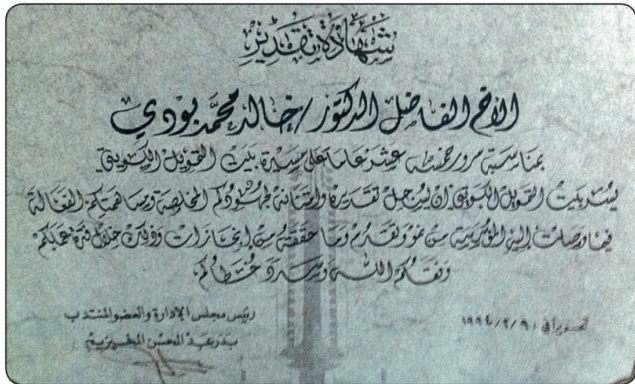 شهادة تقدير
الأخ الفاضل الدكتور / خالد محمد بودي
بمناسبة مرور خمسة عشر عاما على مسيرة بيت التمويل الكويتي
يسر بيت التمويل الكويتي أن يسجل تقديره وامتنانه لجهودكم المخلصة ومساهمتكم الفعالة
فيما وصلت إليه المؤسسة من نمو وتقدم وما حققته من إنجازات ووفق خلال فترة عملكم
وفقكم الله وسدد خطاكم
رئيس مجلس الإدارة والعضو المنتدب
بدر عبد المحسن المخيزيم
تحريرا في ١٩٩٤/٢/٩